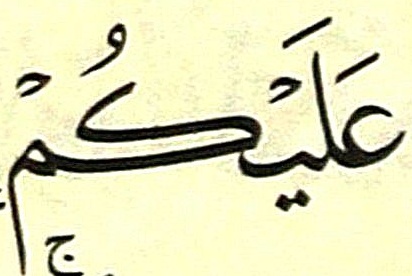 عَلَيْكُمْ
ج